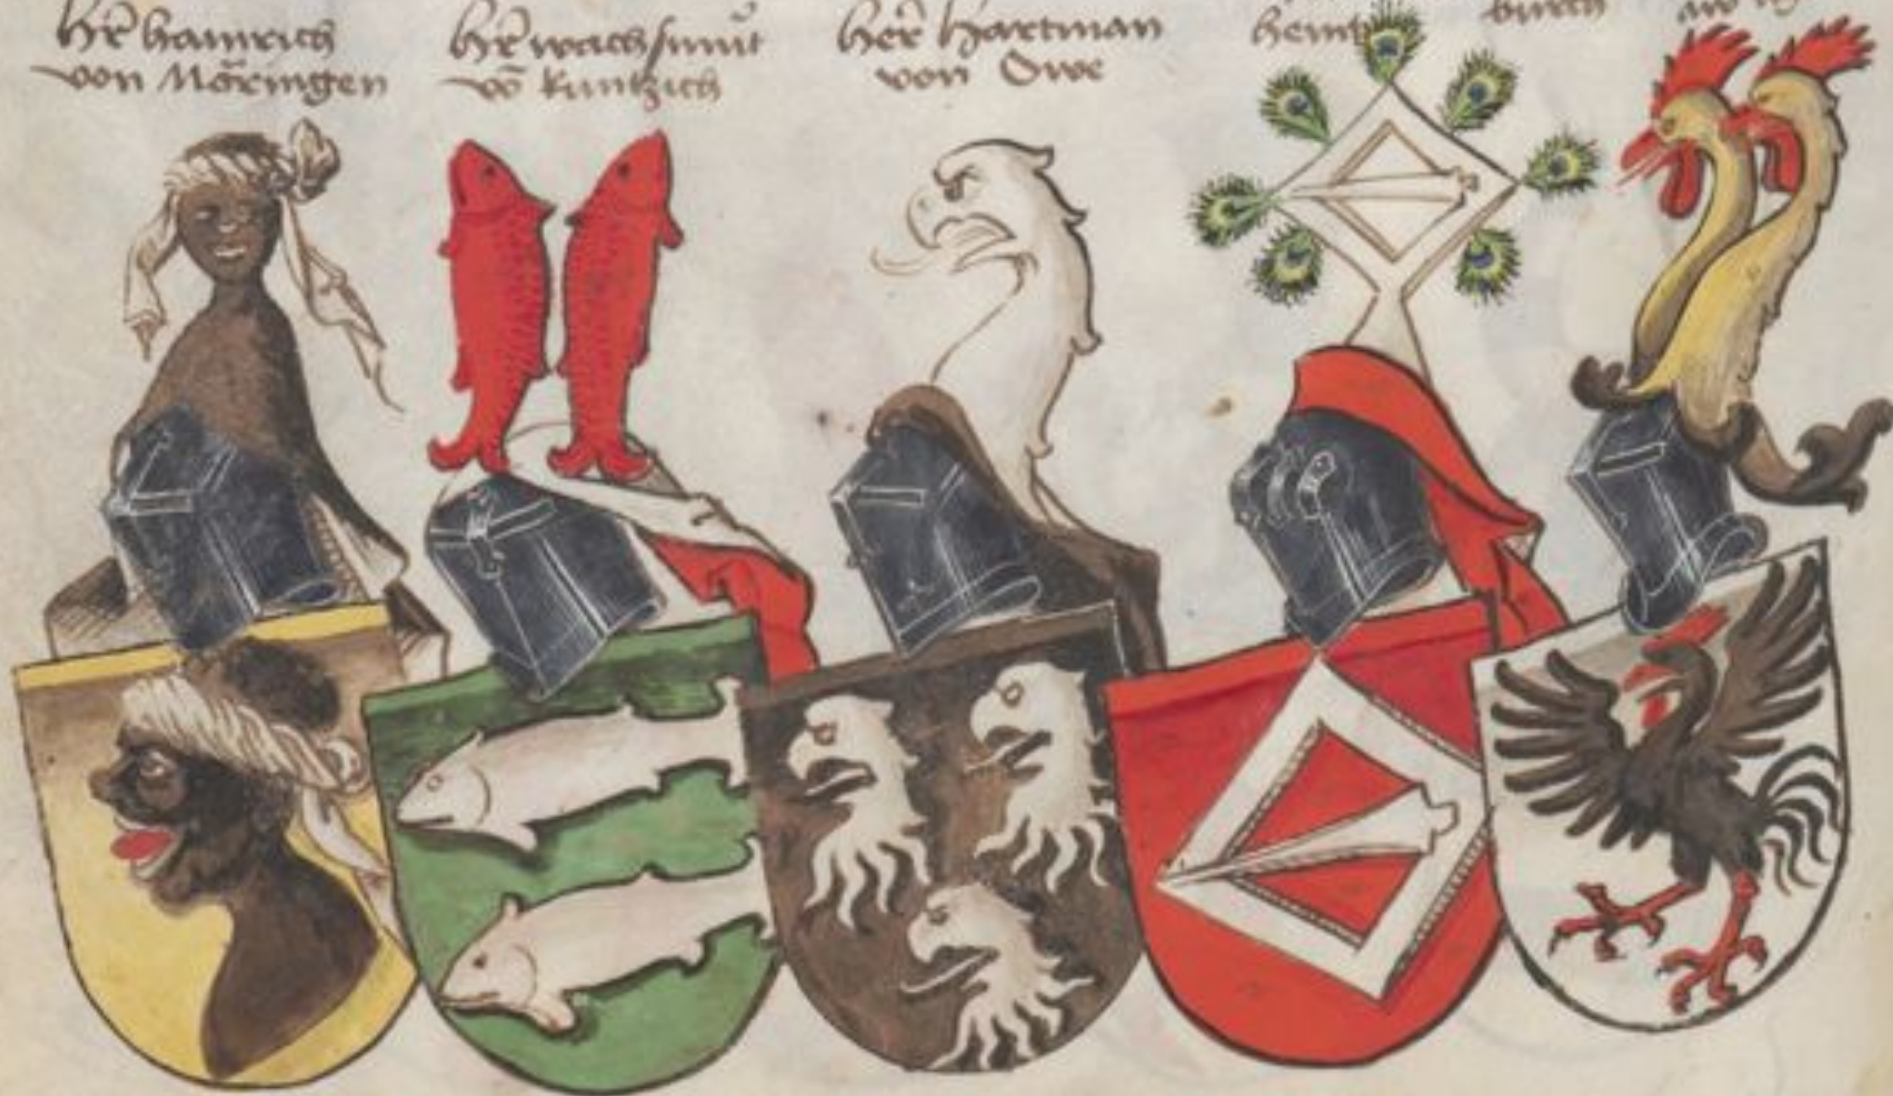 Hr̄ hainrich
von Möringen
Hr̄ wachsmůt
vō kuntzich
Her̄ Hartman
von Owe